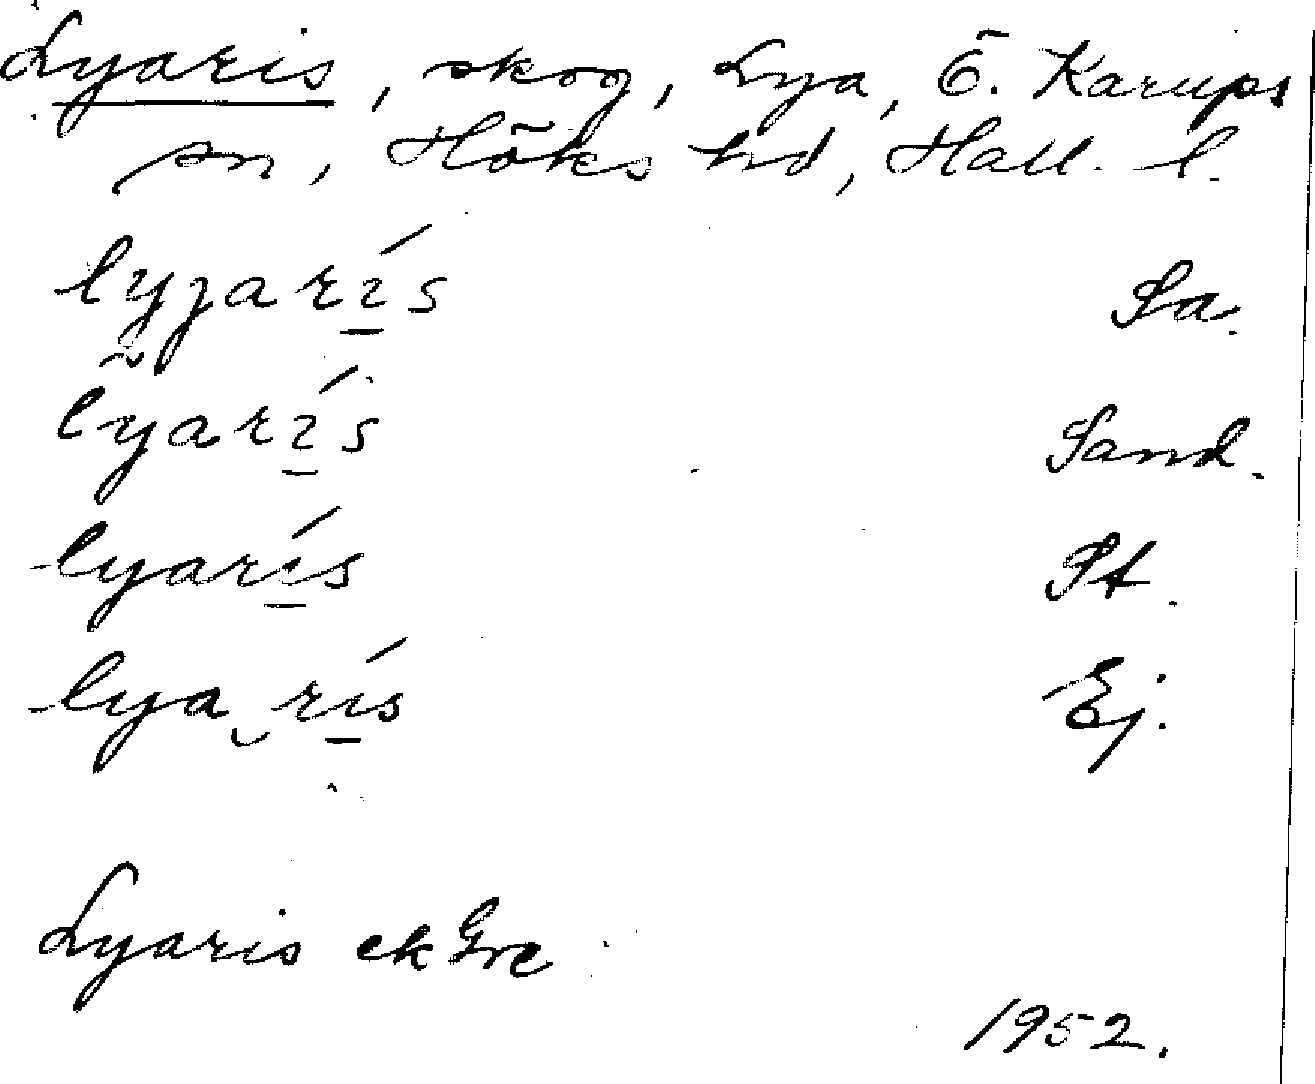 Lyaris, skog, Lya, Ö. Karups
sn, Höks hd, Hall. l.
lyjarı̲́s Sa.
lỹarı̲́s Sand.
lyarı̲́s Pt.
lya‿rı̲́s Ej.
Lyaris ek
1952.